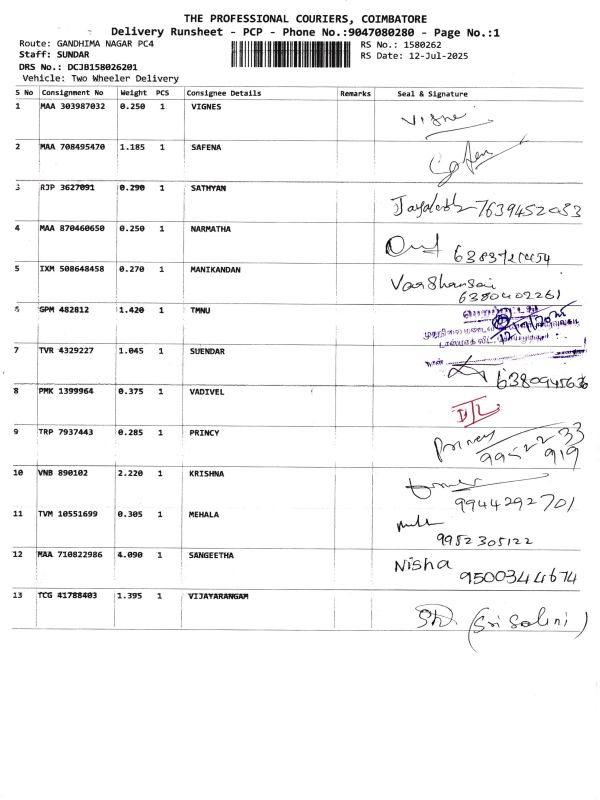 THE PROFESSIONAL COURIERS, COIMBATORE
Delivery Runsheet - PCP - Phone No.:9047080280 - Page No.:1
Route: GANDHIMA NAGAR PC4
RS No.: 1580262
Staff: SUNDAR
RS Date: 12-Jul-2025
DRS No.: DCJB158026201
Vehicle: Two Wheeler Delivery
S No Consignment No Weight PCS Consignee Details Remarks Seal & Signature
1 MAA 303987032 0.250 1 VIGNES Vigne
2 MAA 708495470 1.185 1 SAFENA
3 RJP 3627091 0.290 1 SATHYAN 7639452033
4 MAA 870460650 0.250 1 NARMATHA
5 IXM 508648458 0.270 1 MANIKANDAN Varshansai
6380402261
6 GPM 482812 1.420 1 TMNU
7 TVR 4329227 1.045 1 SUENDAR
6380945636
8 PMK 1399964 0.375 1 VADIVEL
9 TRP 7937443 0.285 1 PRINCY Princy
99522 33
919
10 VNB 890102 2.220 1 KRISHNA
9944292701
11 TVM 10551699 0.305 1 MEHALA
9952305122
12 MAA 710822986 4.090 1 SANGEETHA Nisha
9500344674
13 TCG 41788403 1.395 1 VIJAYARANGAM (Sri Salini)